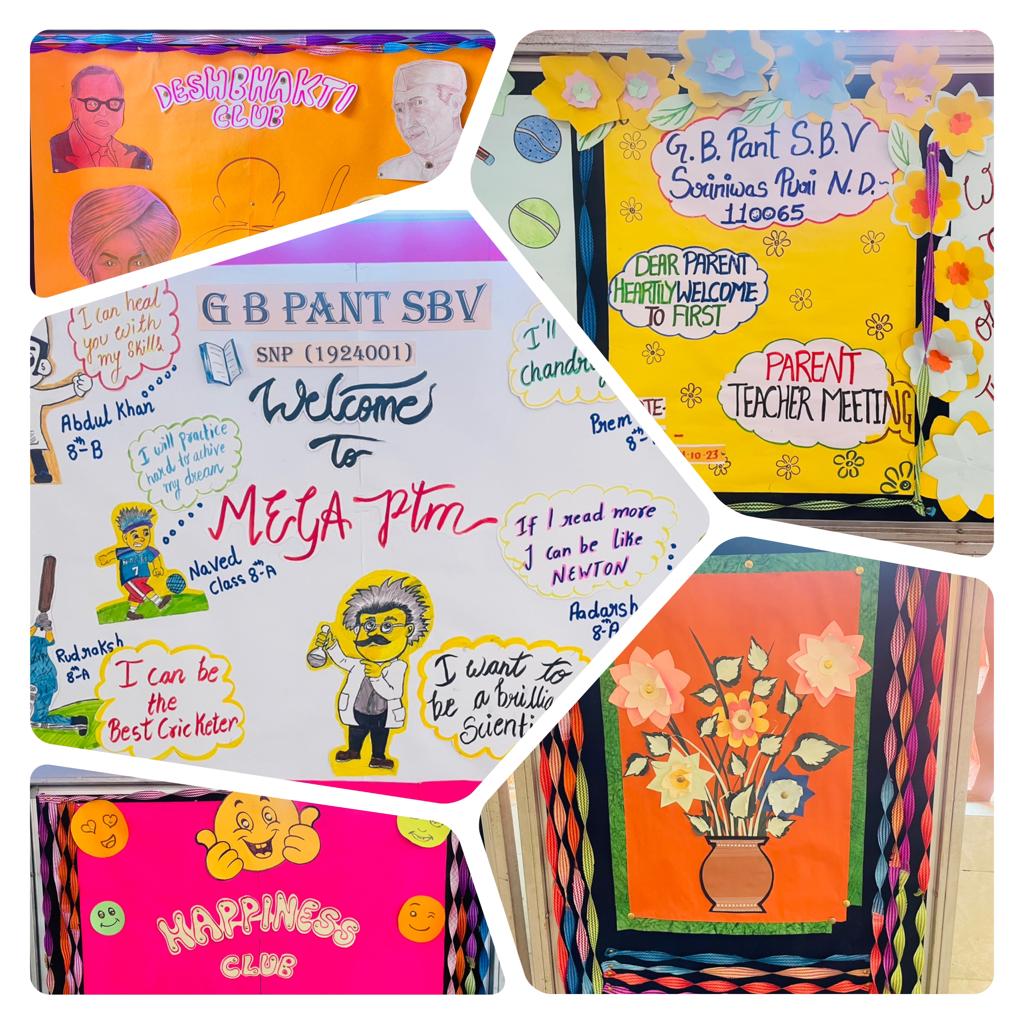 DESHBHAKTI
CLUB
G.B. Pant S.B.V
Sriniwas Puri N.D.-
110065
DEAR PARENT
HEARTILY WELCOME
TO FIRST
PARENT
TEACHER MEETING
10-23-
G B PANT SBV
SNP (1924001)
Welcome
To
MEGA PTM
I can heal
you with
my skills
Abdul Khan
8th-B
I will practice
hard to achive
my dream
Naved
Class 8th-A
Rudraksh
8th-A
I can be
the
Best Cricketer
I'll
Prem
8
If I read more
I can be like
NEWTON
Aadarsh
8th-A
I want to
be a
HAPPINESS
CLUB